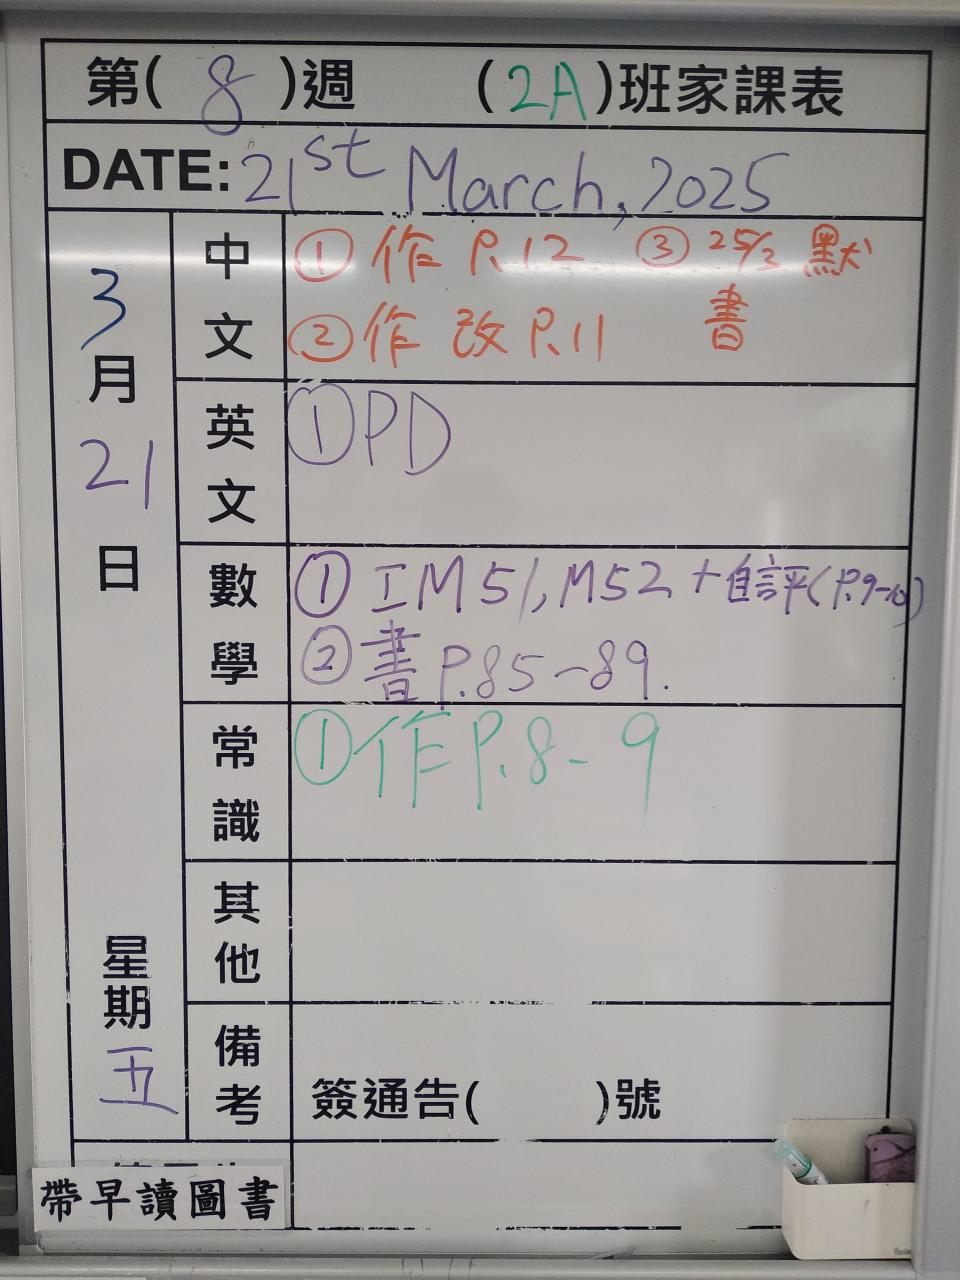 第( 8 )週 (2A)班家課表
DATE: 21st March, 2025
3月21日 星期五
中文
① 作 P.12 ③ 25/3 默書
② 作 改 P.11
英文
① PD
數學
① 工 M51, M52 + 自評(P.9-10)
② 書 P.85-89.
常識
① 作 P.8-9
其他
備考
簽通告( )號
帶早讀圖書